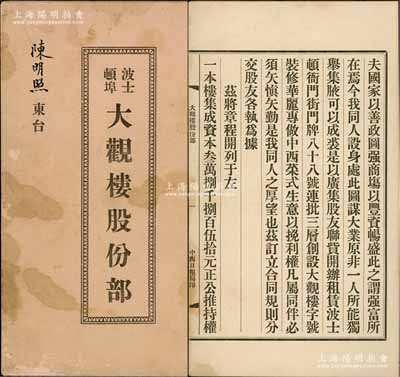 上海陽明拍賣
陳明照
東台
波士頓埠
大觀樓股份部
夫國家以善政圖强商塲以豐資暢盛此之謂强富所
在焉今我同人設身處此圖謀大業原非一人所能獨
舉集腋可以成裘是以廣集股友聯賞開辦租賃波士
頓衙門街門牌八十八號連批三層創設大觀樓字號
裝修華麗專做中西菜式生意以挽利權凡屬同伴必
須矢慎矢勤是我同人之厚望也茲訂立合同規則分
交股友各執爲據
茲將章程開列于左
一本樓集成資本叁萬捌千捌百伍拾元正公推持權
大觀樓股份部
中西日報局印
上海陽明拍賣